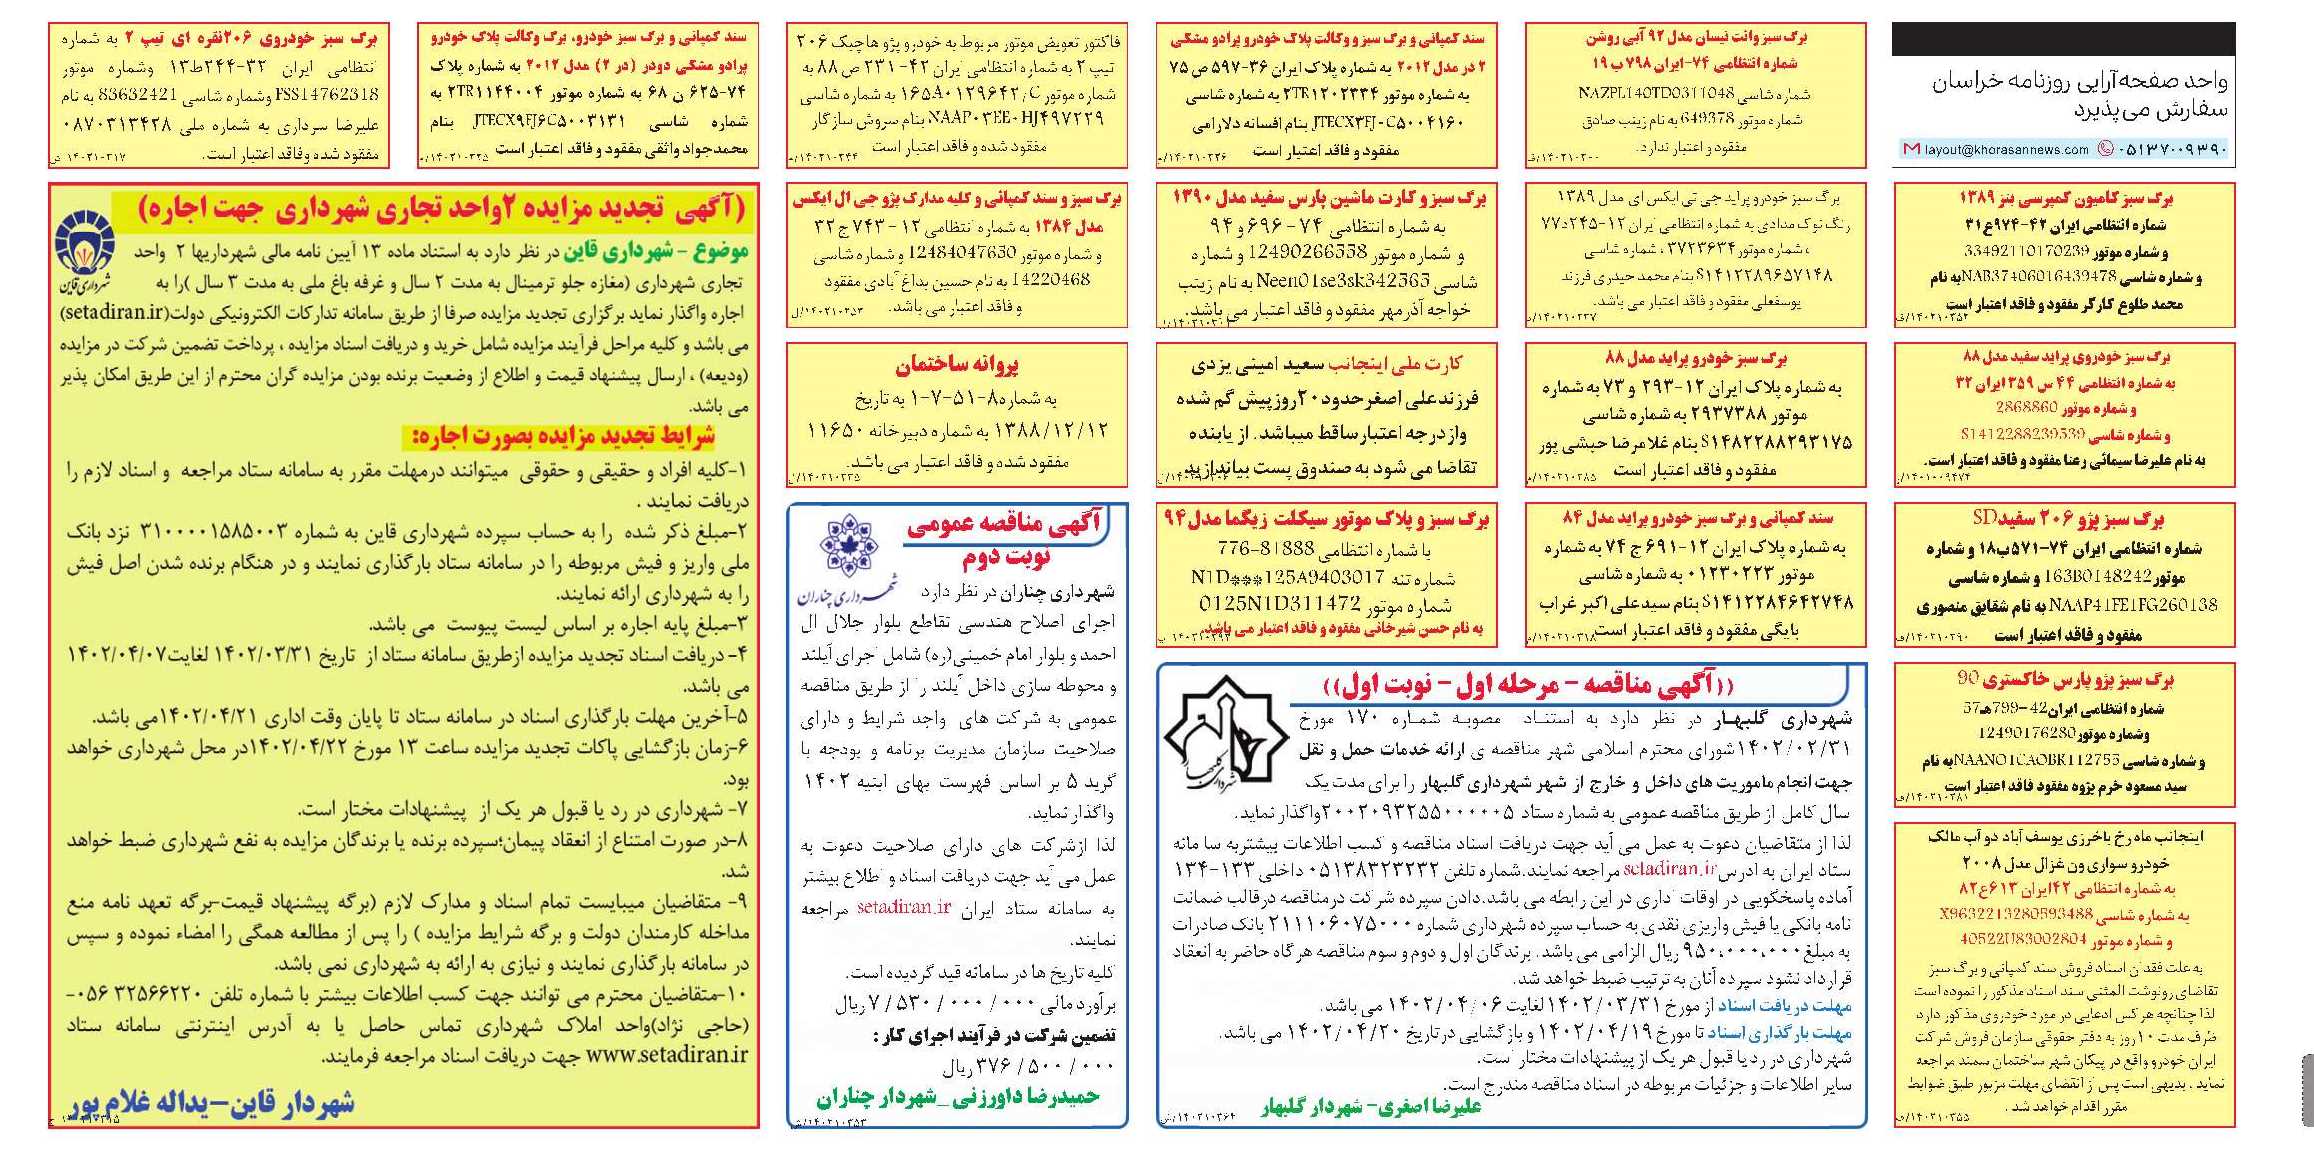 واحد صفحه‌آرایی روزنامه خراسان
سفارش می‌پذیرد
layout@khorasannews.com ۰۵۱۳۷۰۰۹۳۹۰
برگ سبز وانت نیسان مدل ۹۲ آبی روشن
شماره انتظامی ۷۴-ایران ۷۹۸ ب ۱۹
شماره شاسی NAZPL140TD0311048
شماره موتور 649378 به نام زینب صادق
مفقود و اعتبار ندارد.
سند کمپانی و برگ سبز و وکالت پلاک خودرو پرادو مشکی
۲ در مدل ۲۰۱۲ به شماره پلاک ایران ۳۶-۵۹۷ ص ۷۵
به شماره موتور ۲TR۱۲۰۲۳۳۴ به شماره شاسی
JTECX۳FJ۰C۵۰۰۴۱۶۰ بنام افسانه دلارامی
مفقود و فاقد اعتبار است
فاکتور تعویض موتور مربوط به خودرو پژو هاچبک ۲۰۶
تیپ ۲ به شماره انتظامی ایران ۴۲-۲۳۱ ص ۸۸ به
شماره موتور ۱۶۵A۰۱۲۹۶۴۲/C به شماره شاسی
NAAP۰۳EE۰HJ۴۹۷۲۲۹ بنام سروش سازگار
مفقود شده و فاقد اعتبار است
سند کمپانی و برگ سبز خودرو، برگ وکالت پلاک خودرو
پرادو مشکی دودر (در ۲) مدل ۲۰۱۲ به شماره پلاک
۷۴-۶۲۵ ن ۶۸ به شماره موتور ۲TR۱۱۴۴۰۰۴ به
شماره شاسی JTECX۹FJ۶C۵۰۰۳۱۳۱ بنام
محمدجواد واثقی مفقود و فاقد اعتبار است
برگ سبز خودروی ۲۰۶نقره ای تیپ ۲ به شماره
انتظامی ایران ۳۲-۲۴۴ط۱۳ وشماره موتور
FSS14762318 وشماره شاسی 83632421 به نام
علیرضا سرداری به شماره ملی ۰۸۷۰۳۱۳۴۲۸
مفقود شده وفاقد اعتبار است.
برگ سبز کامیون کمپرسی بنز ۱۳۸۹
شماره انتظامی ایران ۴۲-۹۷۴ع۳۱
و شماره موتور 33492110170239
و شماره شاسی NAB37406016439478به نام
محمد طلوع کارگر مفقود و فاقد اعتبار است
برگ سبز خودرو پراید جی تی ایکس ای مدل ۱۳۸۹
رنگ نوک مدادی به شماره انتظامی ایران ۱۲-۲۴۵د۷۷
، شماره موتور ۳۷۲۳۶۳۴ ، شماره شاسی
S۱۴۱۲۲۸۹۶۵۷۱۴۸ بنام محمد حیدری فرزند
یوسفعلی مفقود و فاقد اعتبار می باشد.
برگ سبز و کارت ماشین پارس سفید مدل ۱۳۹۰
به شماره انتظامی ۷۴ - ۶۹۶ و ۹۴
و شماره موتور 12490266558 و شماره
شاسی Neen01se3sk342565 به نام زینب
خواجه آذرمهر مفقود و فاقد اعتبار می باشد.
برگ سبز و سند کمپانی و کلیه مدارک پژو جی ال ایکس
مدل ۱۳۸۴ به شماره انتظامی ۱۲ - ۷۴۳ ج ۳۲
و شماره موتور 12484047630 و شماره شاسی
14220468 به نام حسین بداغ آبادی مفقود
و فاقد اعتبار می باشد.
برگ سبز خودروی پراید سفید مدل ۸۸
به شماره انتظامی ۴۴ س ۳۵۹ ایران ۳۲
و شماره موتور 2868860
و شماره شاسی S1412288239539
به نام علیرضا سیمائی رعنا مفقود و فاقد اعتبار است.
برگ سبز خودرو پراید مدل ۸۸
به شماره پلاک ایران ۱۲-۲۹۳ و ۷۳ به شماره
موتور ۲۹۳۷۳۸۸ به شماره شاسی
S۱۴۸۲۲۸۸۲۹۳۱۷۵ بنام غلامرضا حبشی پور
مفقود و فاقد اعتبار است
کارت ملی اینجانب سعید امینی یزدی
فرزندعلی اصغرحدود۲۰روزپیش گم شده
وازدرجه اعتبارساقط میباشد. از یابنده
تقاضا می شود به صندوق پست بیاندازید
پروانه ساختمان
به شماره۸-۵۱-۷-۱ به تاریخ
۱۳۸۸/۱۲/۱۲ به شماره دبیرخانه ۱۱۶۵۰
مفقود شده و فاقد اعتبار می باشد.
برگ سبز پژو ۲۰۶ سفیدSD
شماره انتظامی ایران ۷۴-۵۷۱ب۱۸ و شماره
موتور163B0148242 و شماره شاسی
NAAP41FE1FG260138 به نام شقایق منصوری
مفقود و فاقد اعتبار است
سند کمپانی و برگ سبز خودرو پراید مدل ۸۴
به شماره پلاک ایران ۱۲-۶۹۱ ج ۷۴ به شماره
موتور ۰۱۲۳۰۲۲۳ به شماره شاسی
S۱۴۱۲۲۸۴۶۴۲۷۴۸ بنام سیدعلی اکبر غراب
بایگی مفقود و فاقد اعتبار است
برگ سبز و پلاک موتور سیکلت زیگما مدل۹۴
با شماره انتظامی 776-81888
شماره تنه N1D***125A9403017
شماره موتور 0125N1D311472
به نام حسن شیرخانی مفقود و فاقد اعتبار می باشد.
برگ سبز پژو پارس خاکستری 90
شماره انتظامی ایران42-799هـ57
وشماره موتور12490176280
و شماره شاسی NAAN01CA0BK112755به نام
سید مسعود خرم پژوه مفقود فاقد اعتبار است
اینجانب ماه رخ باخرزی یوسف آباد دو آب مالک
خودرو سواری ون غزال مدل ۲۰۰۸
به شماره انتظامی ۴۲ایران ۶۱۳ع۸۲
به شماره شاسی X9632213280593488
و شماره موتور 40522U83002804
به علت فقدان اسناد فروش سند کمپانی و برگ سبز
تقاضای رونوشت المثنی سند اسناد مذکور را نموده است
لذا چنانچه هر کس ادعایی در مورد خودروی مذکور دارد
ظرف مدت ۱۰روز به دفتر حقوقی سازمان فروش شرکت
ایران خودرو واقع در پیکان شهر ساختمان سمند مراجعه
نماید . بدیهی است پس از انقضای مهلت مزبور طبق ضوابط
مقرر اقدام خواهد شد .
((آگهی مناقصه - مرحله اول - نوبت اول))
شهرداری گلبهار در نظر دارد به استناد مصوبه شماره ۱۷۰ مورخ
۱۴۰۲/۰۲/۳۱شورای محترم اسلامی شهر مناقصه ی ارائه خدمات حمل و نقل
جهت انجام ماموریت های داخل و خارج از شهر شهرداری گلبهار را برای مدت یک
سال کامل از طریق مناقصه عمومی به شماره ستاد ۲۰۰۲۰۹۳۲۵۵۰۰۰۰۰۵واگذار نماید.
لذا از متقاضیان دعوت به عمل می آید جهت دریافت اسناد مناقصه و کسب اطلاعات بیشتربه سامانه
ستاد ایران به ادرسsetadiran.ir مراجعه نمایند.شماره تلفن ۰۵۱۳۸۳۲۳۲۳۲ داخلی ۱۳۳-۱۳۴
آماده پاسخگویی در اوقات اداری در این رابطه می باشد.دادن سپرده شرکت درمناقصه درقالب ضمانت
نامه بانکی یا فیش واریزی نقدی به حساب سپرده شهرداری شماره ۲۱۱۱۰۶۰۷۵۰۰۰ بانک صادرات
به مبلغ۹۵۰,۰۰۰,۰۰۰ ریال الزامی می باشد. برندگان اول و دوم و سوم مناقصه هر گاه حاضر به انعقاد
قرارداد نشود سپرده آنان به ترتیب ضبط خواهد شد.
مهلت دریافت اسناد از مورخ ۱۴۰۲/۰۳/۳۱ لغایت ۱۴۰۲/۰۴/۰۶ می باشد.
مهلت بارگذاری اسناد تا مورخ ۱۴۰۲/۰۴/۱۹ و بازگشایی درتاریخ ۱۴۰۲/۰۴/۲۰ می باشد.
شهرداری در رد یا قبول هر یک از پیشنهادات مختار است.
سایر اطلاعات و جزئیات مربوطه در اسناد مناقصه مندرج است.
علیرضا اصغری- شهردار گلبهار
آگهی مناقصه عمومی
نوبت دوم
شهرداری چناران
شهرداری چناران در نظر دارد
اجرای اصلاح هندسی تقاطع بلوار جلال ال
احمد و بلوار امام خمینی(ره) شامل اجرای آیلند
و محوطه سازی داخل آیلند را از طریق مناقصه
عمومی به شرکت های واجد شرایط و دارای
صلاحیت سازمان مدیریت برنامه و بودجه با
گرید ۵ بر اساس فهرست بهای ابنیه ۱۴۰۲
واگذار نماید.
لذا ازشرکت های دارای صلاحیت دعوت به
عمل می آید جهت دریافت اسناد و اطلاع بیشتر
به سامانه ستاد ایران setadiran.ir مراجعه
نمایند.
کلیه تاریخ ها در سامانه قید گردیده است.
برآوردمالی ۰۰۰ / ۰۰۰ / ۵۳۰ / ۷ ریال
تضمین شرکت در فرآیند اجرای کار :
۰۰۰ / ۵۰۰ / ۳۷۶ ریال
حمیدرضا داورزنی _شهردار چناران
(آگهی تجدید مزایده ۲واحد تجاری شهرداری جهت اجاره)
شهرداری قاین
موضوع - شهرداری قاین در نظر دارد به استناد ماده ۱۳ آیین نامه مالی شهرداریها ۲ واحد
تجاری شهرداری (مغازه جلو ترمینال به مدت ۲ سال و غرفه باغ ملی به مدت ۳ سال )را به
اجاره واگذار نماید برگزاری تجدید مزایده صرفا از طریق سامانه تدارکات الکترونیکی دولت(setadiran.ir)
می باشد و کلیه مراحل فرآیند مزایده شامل خرید و دریافت اسناد مزایده ، پرداخت تضمین شرکت در مزایده
(ودیعه) ، ارسال پیشنهاد قیمت و اطلاع از وضعیت برنده بودن مزایده گران محترم از این طریق امکان پذیر
می باشد.
شرایط تجدید مزایده بصورت اجاره:
۱-کلیه افراد و حقیقی و حقوقی میتوانند درمهلت مقرر به سامانه ستاد مراجعه و اسناد لازم را
دریافت نمایند .
۲-مبلغ ذکر شده را به حساب سپرده شهرداری قاین به شماره ۳۱۰۰۰۰۱۵۸۵۰۰۳ نزد بانک
ملی واریز و فیش مربوطه را در سامانه ستاد بارگذاری نمایند و در هنگام برنده شدن اصل فیش
را به شهرداری ارائه نمایند.
۳-مبلغ پایه اجاره بر اساس لیست پیوست می باشد.
۴- دریافت اسناد تجدید مزایده ازطریق سامانه ستاد از تاریخ ۱۴۰۲/۰۳/۳۱ لغایت۱۴۰۲/۰۴/۰۷
می باشد.
۵-آخرین مهلت بارگذاری اسناد در سامانه ستاد تا پایان وقت اداری ۱۴۰۲/۰۴/۲۱می باشد.
۶-زمان بازگشایی پاکات تجدید مزایده ساعت ۱۳ مورخ ۱۴۰۲/۰۴/۲۲در محل شهرداری خواهد
بود.
۷- شهرداری در رد یا قبول هر یک از پیشنهادات مختار است.
۸-در صورت امتناع از انعقاد پیمان؛سپرده برنده یا برندگان مزایده به نفع شهرداری ضبط خواهد
شد.
۹- متقاضیان میبایست تمام اسناد و مدارک لازم (برگه پیشنهاد قیمت-برگه تعهد نامه منع
مداخله کارمندان دولت و برگه شرایط مزایده ) را پس از مطالعه همگی را امضاء نموده و سپس
در سامانه بارگذاری نمایند و نیازی به ارائه به شهرداری نمی باشد.
۱۰-متقاضیان محترم می توانند جهت کسب اطلاعات بیشتر با شماره تلفن ۳۲۵۶۶۲۲۰ ۰۵۶-
(حاجی نژاد)واحد املاک شهرداری تماس حاصل یا به آدرس اینترنتی سامانه ستاد
www.setadiran.ir جهت دریافت اسناد مراجعه فرمایند.
شهردار قاین-یداله غلام پور